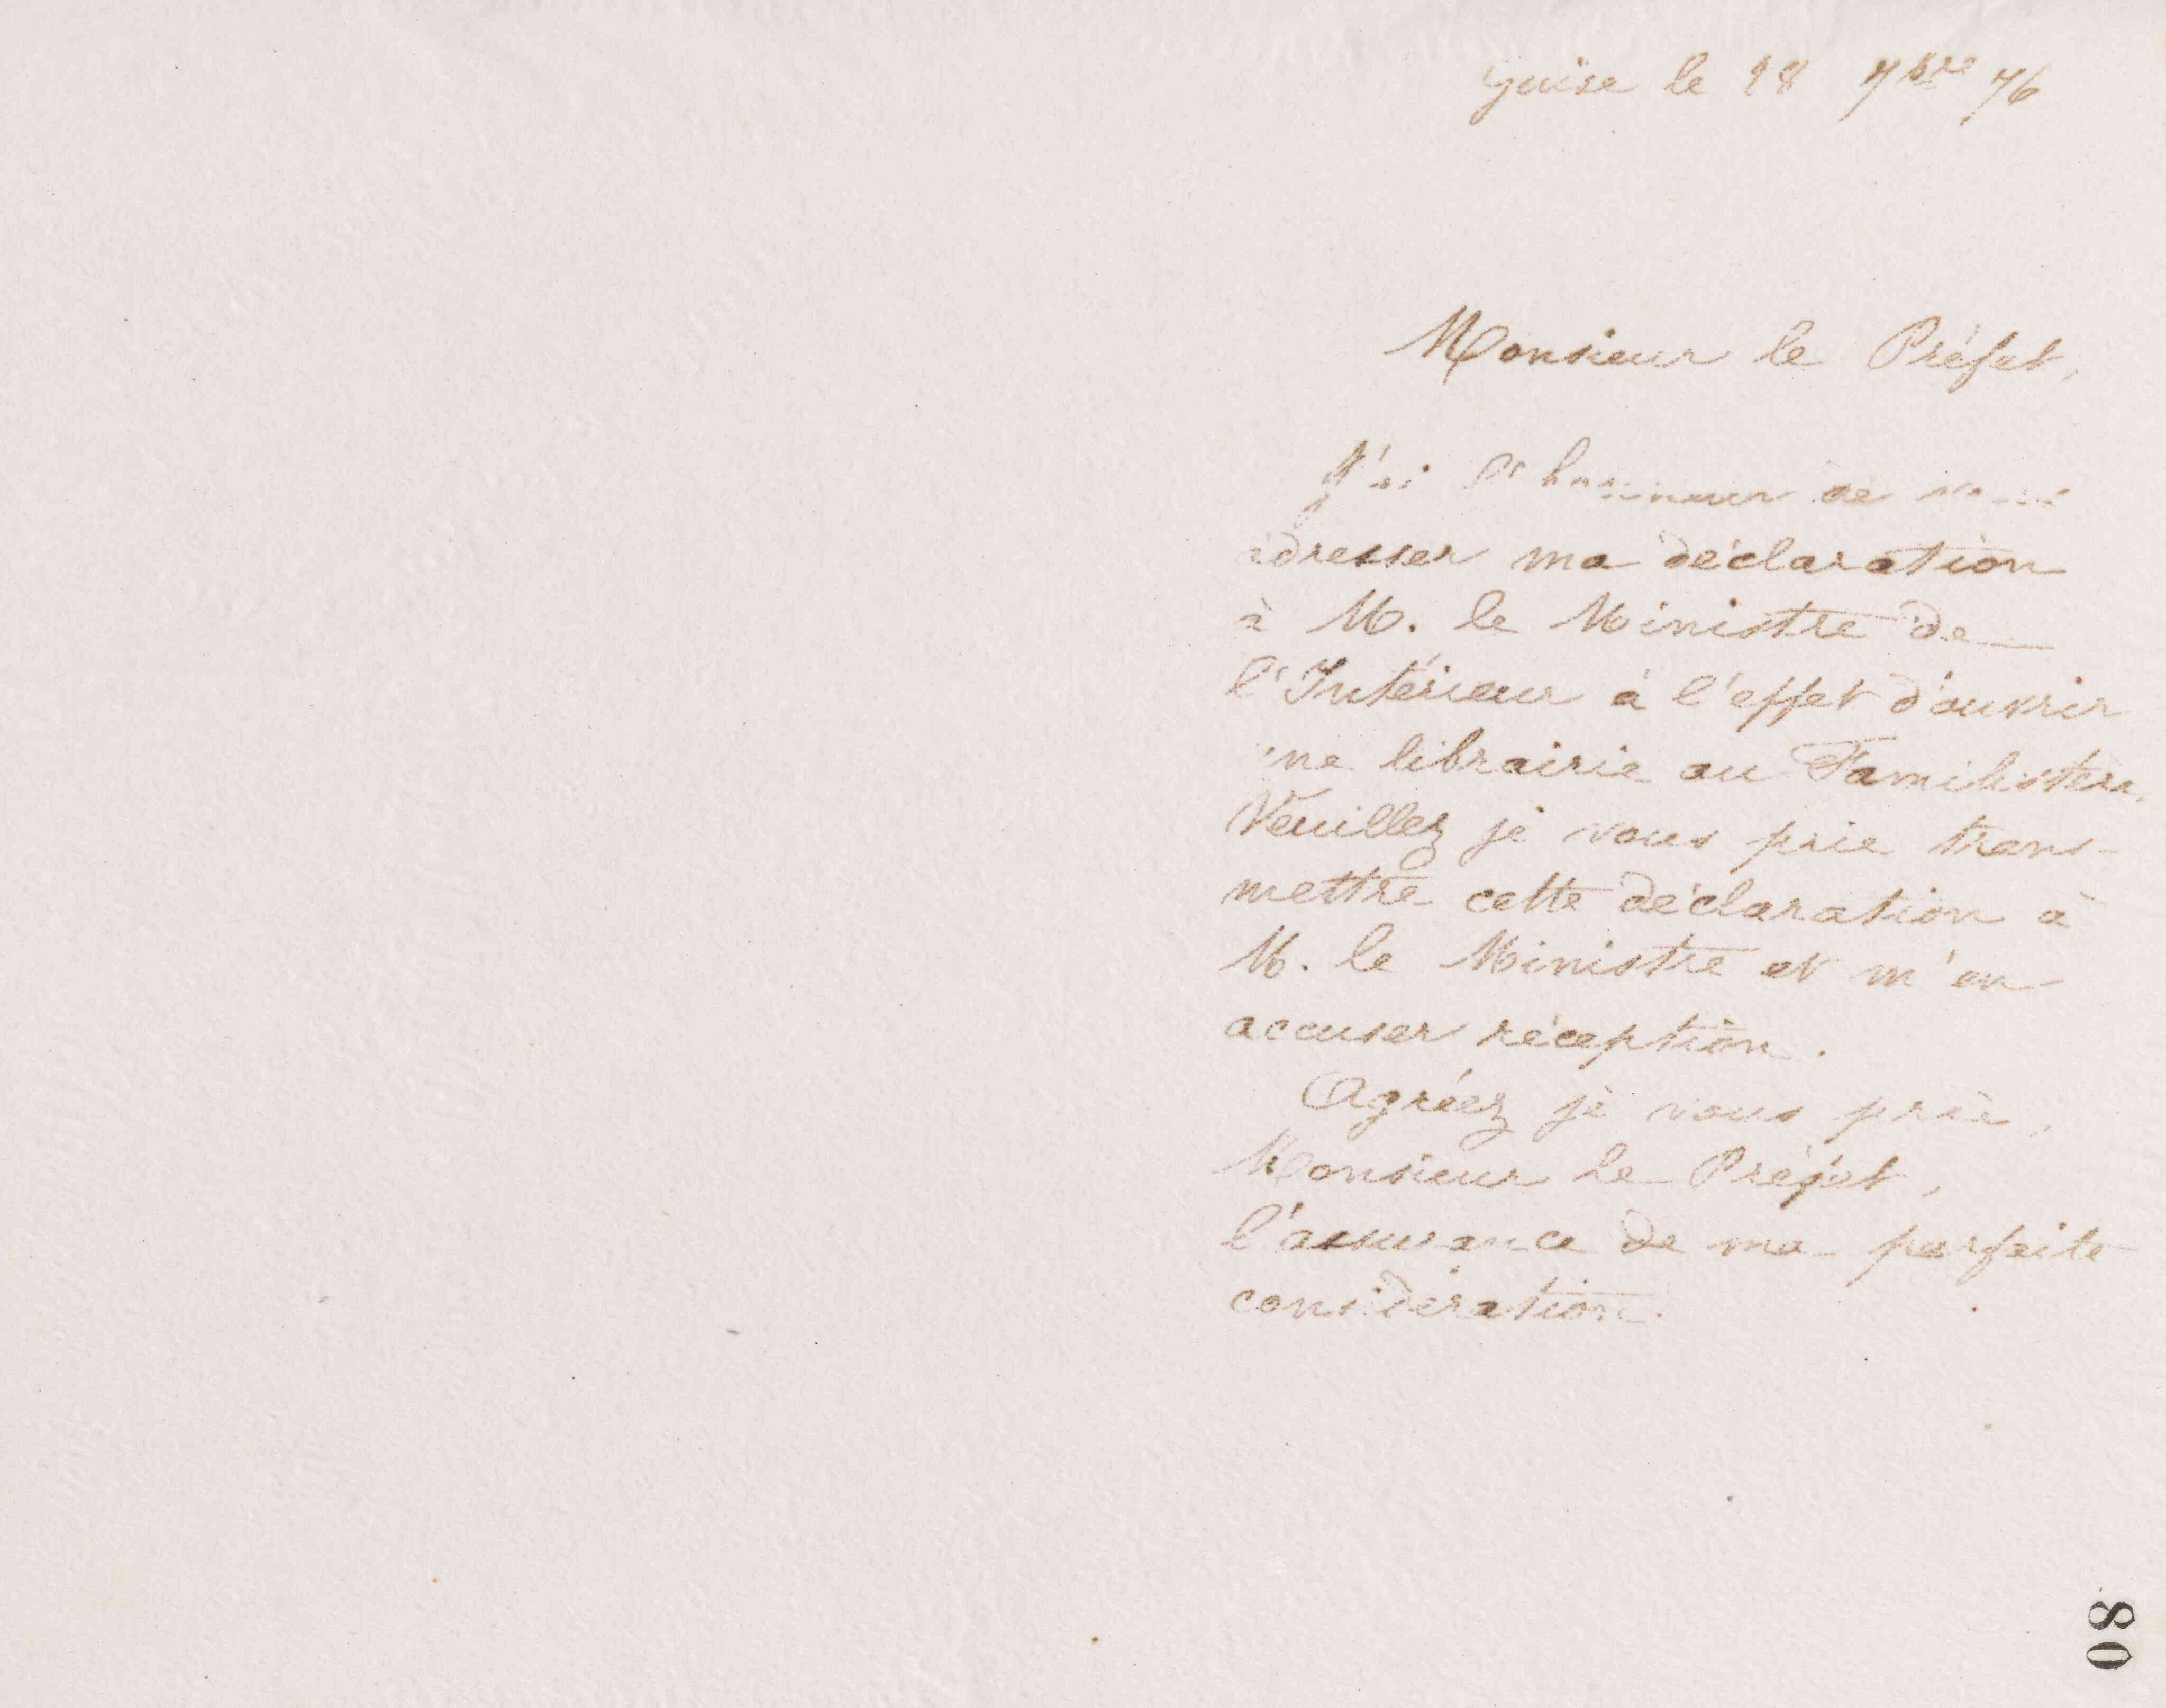 Guise le 18 7bre 76
Monsieur le Préfet,
J'ai l'honneur de vous
adresser ma déclaration
à M. le Ministre de
l'Intérieur à l'effet d'ouvrir
une librairie au Familistère.
Veuillez je vous prie trans-
mettre cette déclaration à
M. le Ministre et m'en
accuser réception.
Agréez je vous prie,
Monsieur le Préfet,
l'assurance de ma parfaite
considération.
80